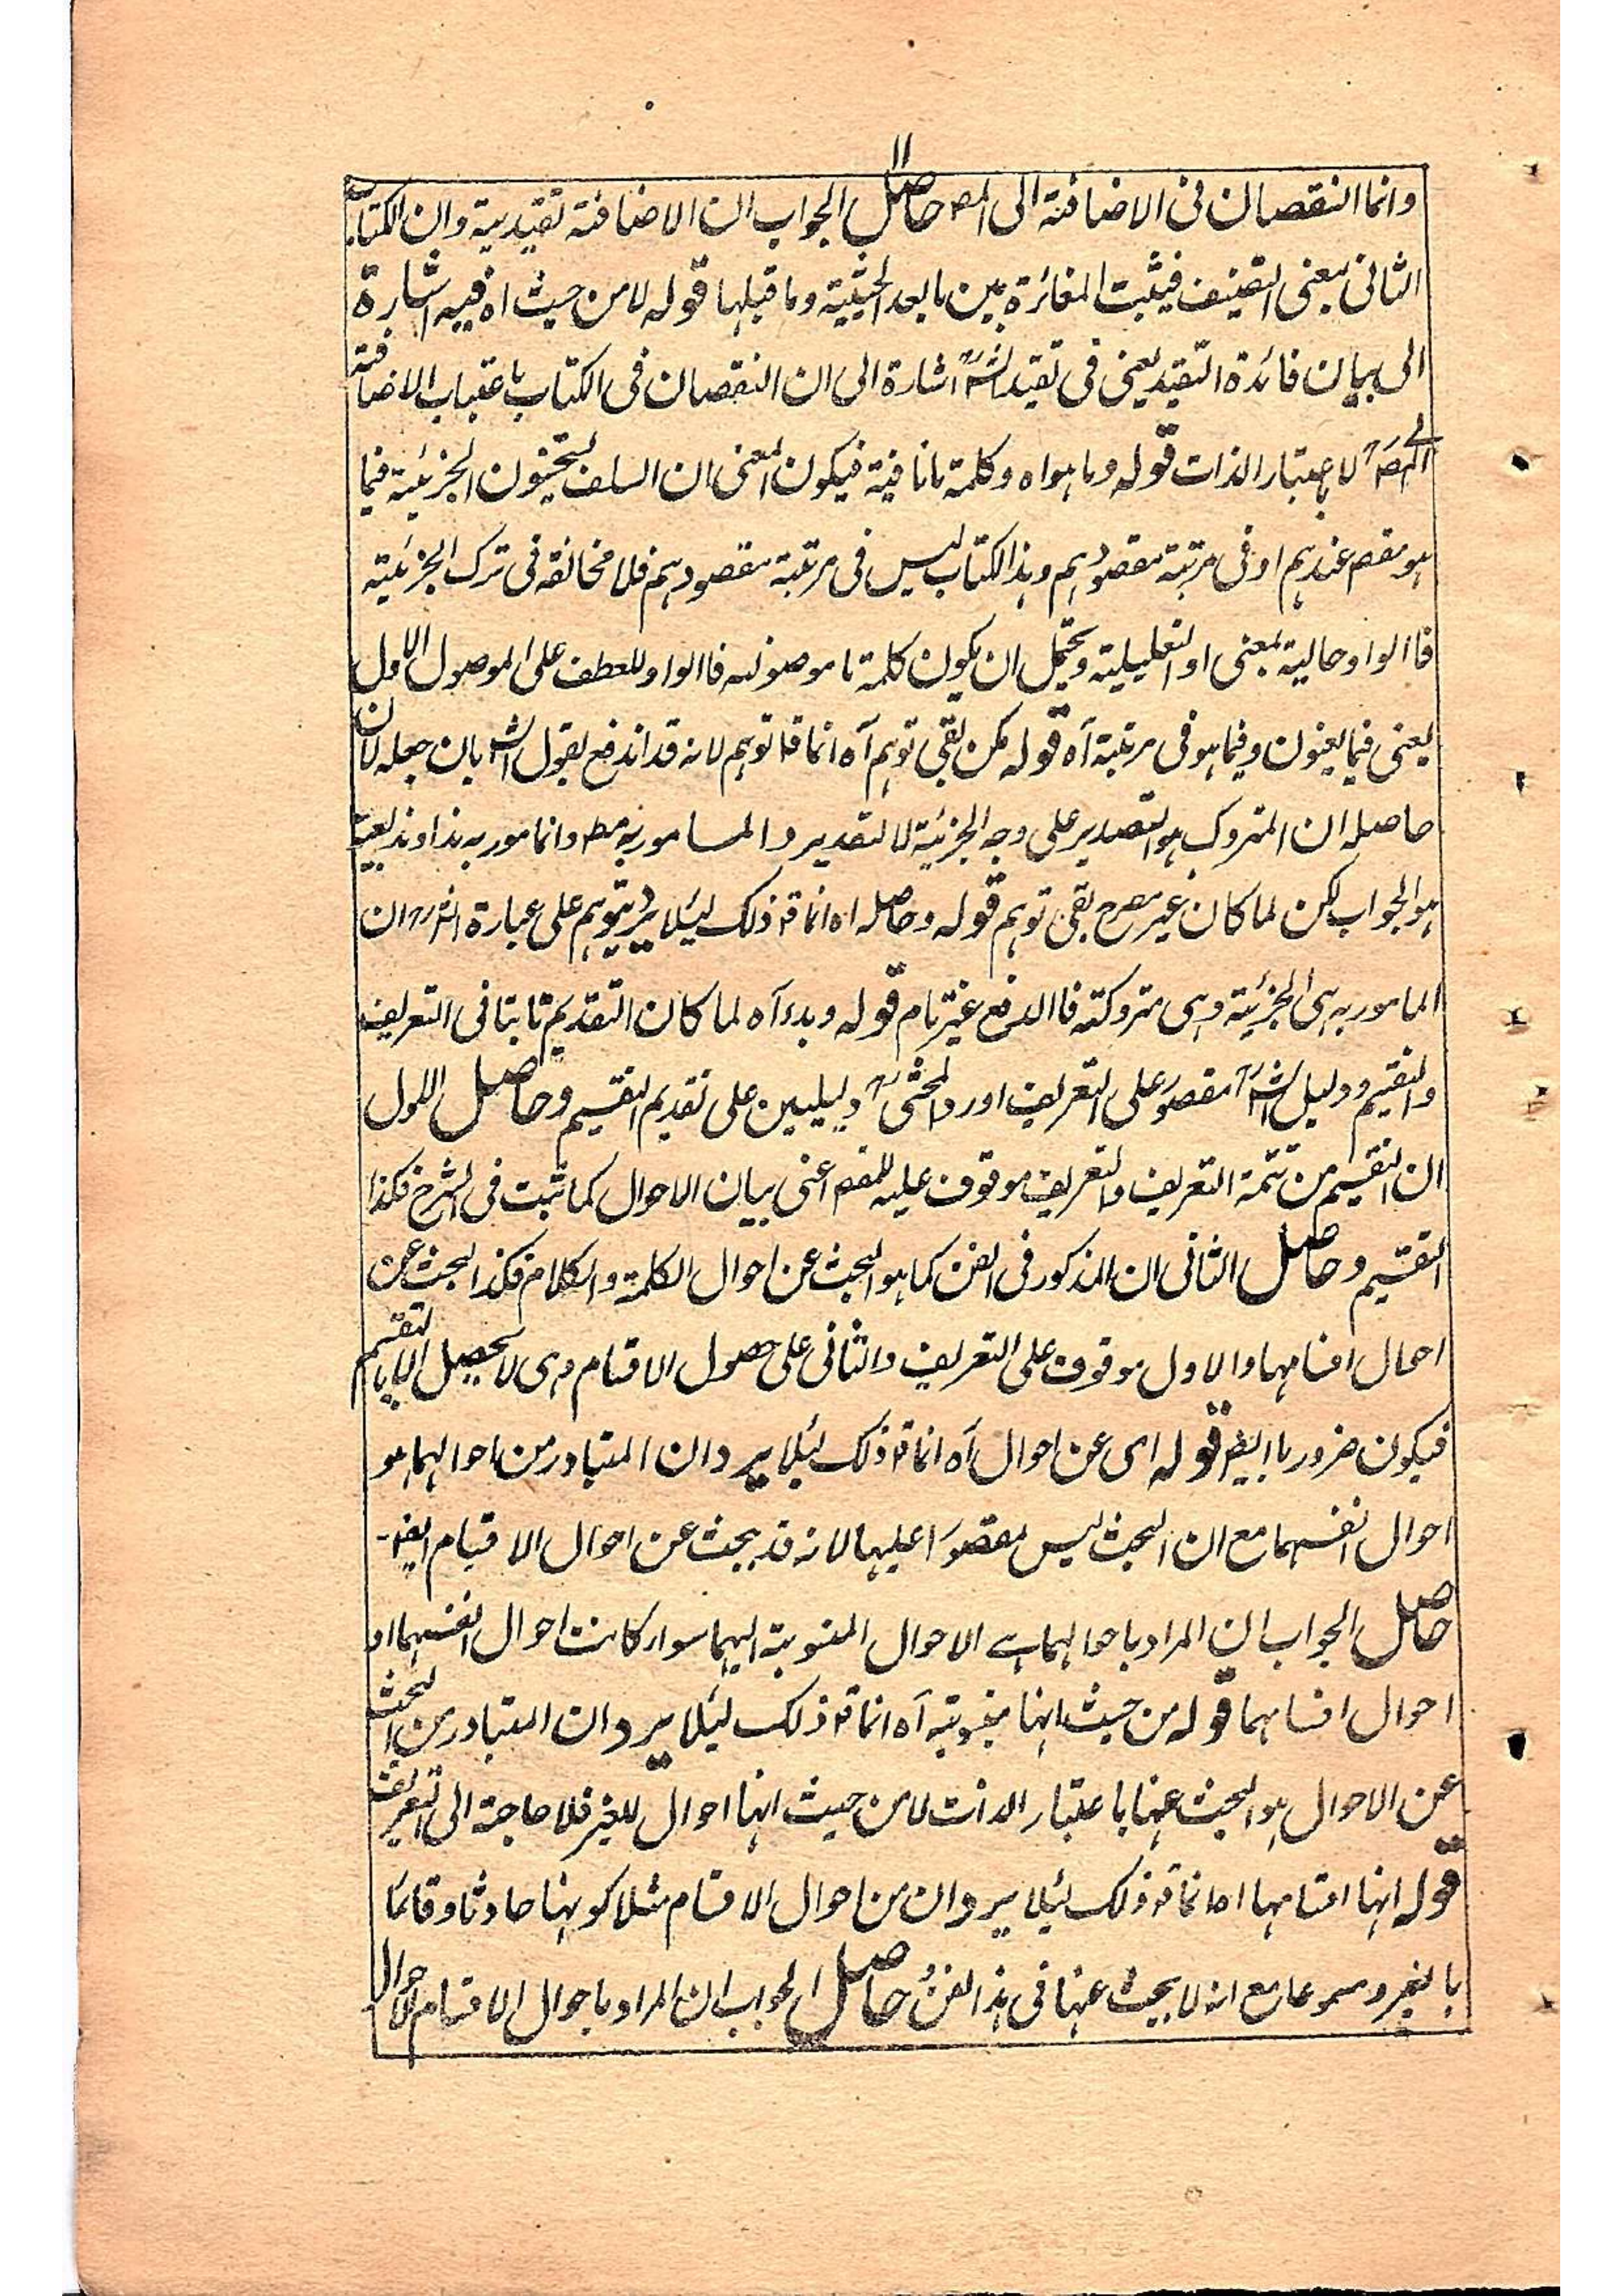 ۱۱
وانما النقصان فی الاضافة الی المص حاصل الجواب ان الاضافة تقیدیة وان الکتاب
الثانی بمعنی التصنیف فیثبت المغائرة بین مابعد الحیثیة وما قبلها قوله لامن حیث اه فیه اشارة
الی بیان فائدة التقید یعنی فی تقید الشؒ اشارة الی ان النقصان فی الکتاب باعتبار الاضافة
الی المصؒ لا باعتبار الذات قوله وما هو اه وکلمة مانافیة فیکون المعنی ان السلف یستحیون الجزئیة فیما
هو مقصم عندهم او فی مرتبة مقصودهم وهذا الکتاب لیس فی مرتبة مقصودهم فلا مخالفة فی ترک الجزئیة
فاالواو حالیة بمعنی او التعلیلیة ویحتمل ان یکون کلمة ما موصوله فاالواو للعطف علی الموصول الاول
یعنی فیما یعنون وفیما هو فی مرتبة آه قوله لکن بقی توهم آه انما قا توهم لانه قد اندفع بقول الش بان جعله لان
حاصله ان المتروک هو التصدیر علی وجه الجزئیة لا التقدیر و المامور به مط وانما مور به هذا وهذ بعینه
هو الجواب لکن لما کان غیر مصرح بقی توهم قوله وحاصله اه انما قا ذلک لیئلا یرد یتوهم علی عبارة الشرح ان
المامور به هی الجزئیة وهی متروکته فاالدفع غیر تام قوله وبدء آه لما کان التقدیم ثابتا فی التعریف
والتقسیم ودلیل الشؒ مقصورَ علی التعریف اورد المحشیؒ دلیلین علی تقدیم التقسیم وحاصل الاول
ان التقسیم من تتمة التعریف والتعریف موقوف علیه للمقصم اعنی بیان الاحوال کما ثبت فی الشرح فکذا
التقسیم وحاصل الثانی ان المذکور فی الفن کما هو البحث عن احوال الکلمة والکلام فکذا البحث عن
احوال اقسامهما والاول موقوف علی التعریف والثانی علی حصول الاقسام وهی لا تحصل الا بالتقسیم
فیکون ضروریا ایضا قوله ای عن احوال آه انما قا ذلک لیئلا یرد ان المتبادر من احوالهما هو
احوال انفسهما مع ان البحث لیس مقصورَا علیها لانه قد یبحث عن احوال الاقسام ایضا-
حاصل الجواب ان المراد باحوالهما هے الاحوال المنسوبة الیهما سواء کانت احوال انفسهما او
احوال اقسامهما قوله من حیث انها منسوبته آه انما قا ذلک لیئلا یرد ان المتبادر من البحث
عن الاحوال هو البحث عنها باعتبار الذات لامن حیث انها احوال للغیر فلا حاجة الی التعریف
قوله انها اقسامها اه انما قا ذلک لیئلا یرد ان من احوال الاقسام مثلا کونها حادثا وقائما
بالغیر ومسموعا مع انه لا یبحث عنها فی هذا الفن حاصل الجواب ان المراد باحوال الاقسام الاحوال